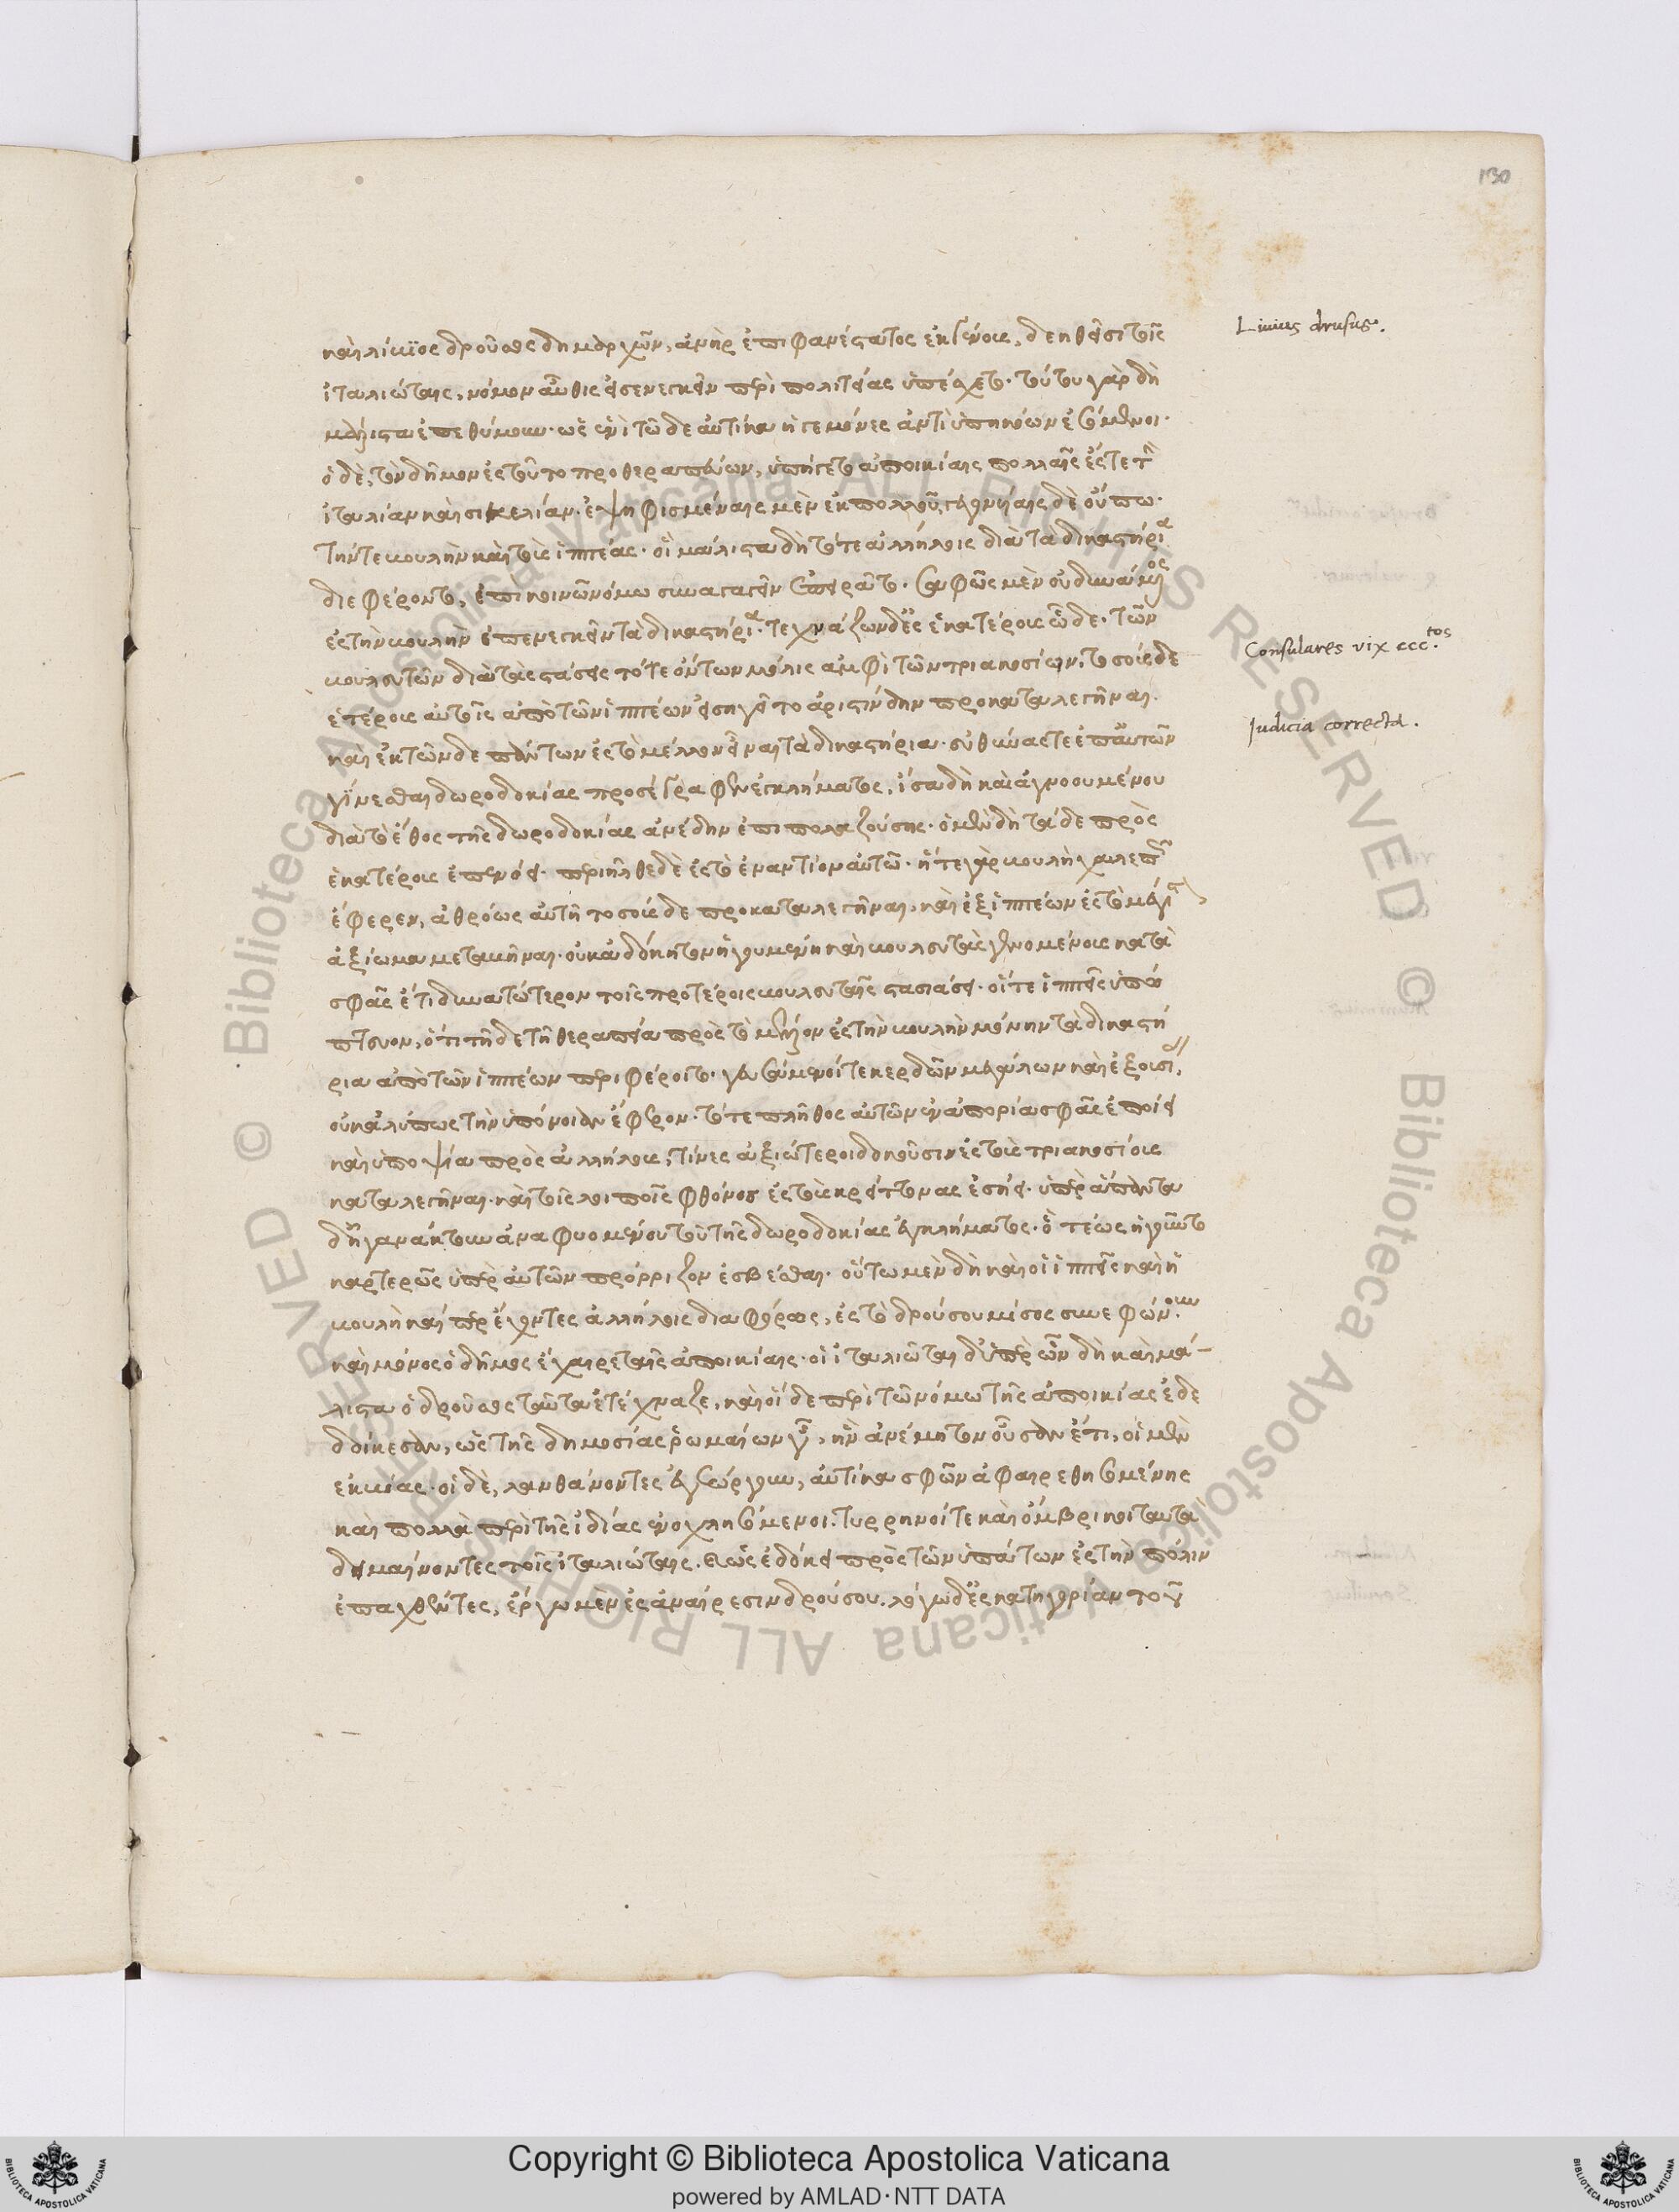 καὶ λίβιος δροῦσος δημαρχῶν, ἀνὴρ ἐπιφανέστατος ἐκ γένους, δεηθεῖσι τοῖς
ἰταλιώταις, νόμον αὖθις ἐσενεγκεῖν περὶ πολιτείας ὑπέσχετο. τούτου γὰρ δὴ
μάλιστα ἐπεθύμουν. ὡς ἑνὶ τῶδε αὐτίκα ἡγεμόνες ἀντὶ ὑπηκόων ἐσόμενοι.
ὁ δὲ, τὸν δῆμον ἐς τοῦτο προθεραπεύων, ὑπήγετο ἀποικίαις πολλαῖς ἔς τε τὴν
ἰταλίαν καὶ σικελίαν. ἐψηφισμέναις μὲν ἐκ πολλοῦ, γεγονυίαις δὲ οὔπω.
τήν τε βουλὴν καὶ τοὺς ἱππέας. οἳ μάλιστα δὴ τότε ἀλλήλοις διὰ τὰ δικαστήρια
διεφέροντο, ἐπὶ κοινῶ νόμω συναγαγεῖν ἐπειρᾶτο. σαφῶς μὲν οὐ δυνάμενος
ἐς τὴν βουλὴν ἐπενεγκεῖν τὰ δικαστήρια. τεχνάζων δ' ἐς ἑκατέρους ὧδε. τῶν
βουλευτῶν διὰ τὰς στάσεις τότε ὄντων μόλις ἀμφὶ τῶν τριακοσίων, τοσούσδε
ἑτέρους αὐτοῖς ἀπὸ τῶν ἱππέων ἐσηγεῖτο ἀριστίνδην προκαταλεγῆναι.
καὶ ἐκ τῶνδε πάντων ἐς τὸ μέλλον εἶναι τὰ δικαστήρια. εὐθύνας τε ἐπ' αὐτῶν
γίνεσθαι δωροδοκίας προσέγραφεν ἐγκλήματος, ἴσα δὴ καὶ ἀγνοουμένου
διὰ τὸ ἔθος τῆς δωροδοκίας ἀνέδην ἐπιπολαζούσης. ὁ μὲν δὴ τάδε πρὸς
ἑκατέρους ἐπενόει. περιῆλθε δὲ ἐς τὸ ἐναντίον αὐτῶ. ἥ τε γὰρ βουλὴ χαλεπῶς
ἔφερεν, ἀθρόως αὐτῆ τοσούσδε προκαταλεγῆναι, καὶ ἐξ ἱππέων ἐς τὸ μέγιστον
ἀξίωμα μεταβῆναι. οὐκ ἀδόκητον ἡγουμένη καὶ βουλευτὰς γενομένους κατὰ
σφᾶς ἔτι δυνατώτερον τοῖς προτέροις βουλευταῖς στασιάσειν. οἵ τε ἱππεῖς ὑπώ
πτευον, ὅτι τῆδε τῆ θεραπεία πρὸς τὸ μέλλον ἐς τὴν βουλὴν μόνην τὰ δικαστή
ρια ἀπὸ τῶν ἱππέων περιφέροιτο. γευσάμενοί τε κερδῶν μεγάλων καὶ ἐξουσίας,
οὐκ ἀλύπως τὴν ὑπόνοιαν ἔφερον. τό τε πλῆθος αὐτῶν ἐν ἀπορία σφᾶς ἐποίει
καὶ ὑποψία πρὸς ἀλλήλους, τίνες ἀξιώτεροι δοκοῦσιν ἐς τοὺς τριακοσίους
καταλεγῆναι. καὶ τοῖς λοιποῖς φθόνος ἐς τοὺς κρείττονας ἐσήει. ὑπὲρ ἅπαντα
δ' ἠγανάκτουν ἀναφυομένου τοῦ τῆς δωροδοκίας ἐγκλήματος. ὃ τέως ἡγοῦντο
καρτερῶς ὑπὲρ αὑτῶν πρόρριζον ἐσβέσθαι. οὕτω μὲν δὴ καὶ οἱ ἱππεῖς καὶ ἡ
βουλὴ καίπερ ἔχοντες ἀλλήλοις διαφόρως, ἐς τὸ δρούσου μῖσος συνεφώνουν.
καὶ μόνος ὁ δῆμος ἔχαιρε ταῖς ἀποικίαις. οἱ ἰταλιῶται δ' ὑπὲρ ὧν δὴ καὶ μά-
λιστα ὁ δροῦσος ταῦτα ἐτέχναζε, καὶ οἵδε περὶ τῶ νόμω τῆς ἀποικίας ἐδε
δοίκεσαν, ὡς τῆς δημοσίας ῥωμαίων γῆς, ἣν ἀνέμητον οὖσαν ἔτι, οἱ μὲν
ἐκ βίας. οἱ δὲ, λανθάνοντες ἐγεώργουν, αὐτίκα σφῶν ἀφαιρεθησομένης
καὶ πολλὰ περὶ τῆς ἰδίας ἐνοχλησόμενοι. τυρρηνοί τε καὶ ὀμβρικοὶ ταυτὰ
δειμαίνοντες τοῖς ἰταλιώταις. καὶ ὡς ἐδόκει πρὸς τῶν ὑπάτων ἐς τὴν πόλιν
ἐπαχθέντες, ἔργω μὲν ἐς ἀναίρεσιν δρούσου. λόγω δ' ἐς κατηγορίαν τοῦ
Liuius drusus.
Consulares vix ccc.tos
Judicia correcta.
130
Copyright © Biblioteca Apostolica Vaticana
powered by AMLAD·NTT DATA